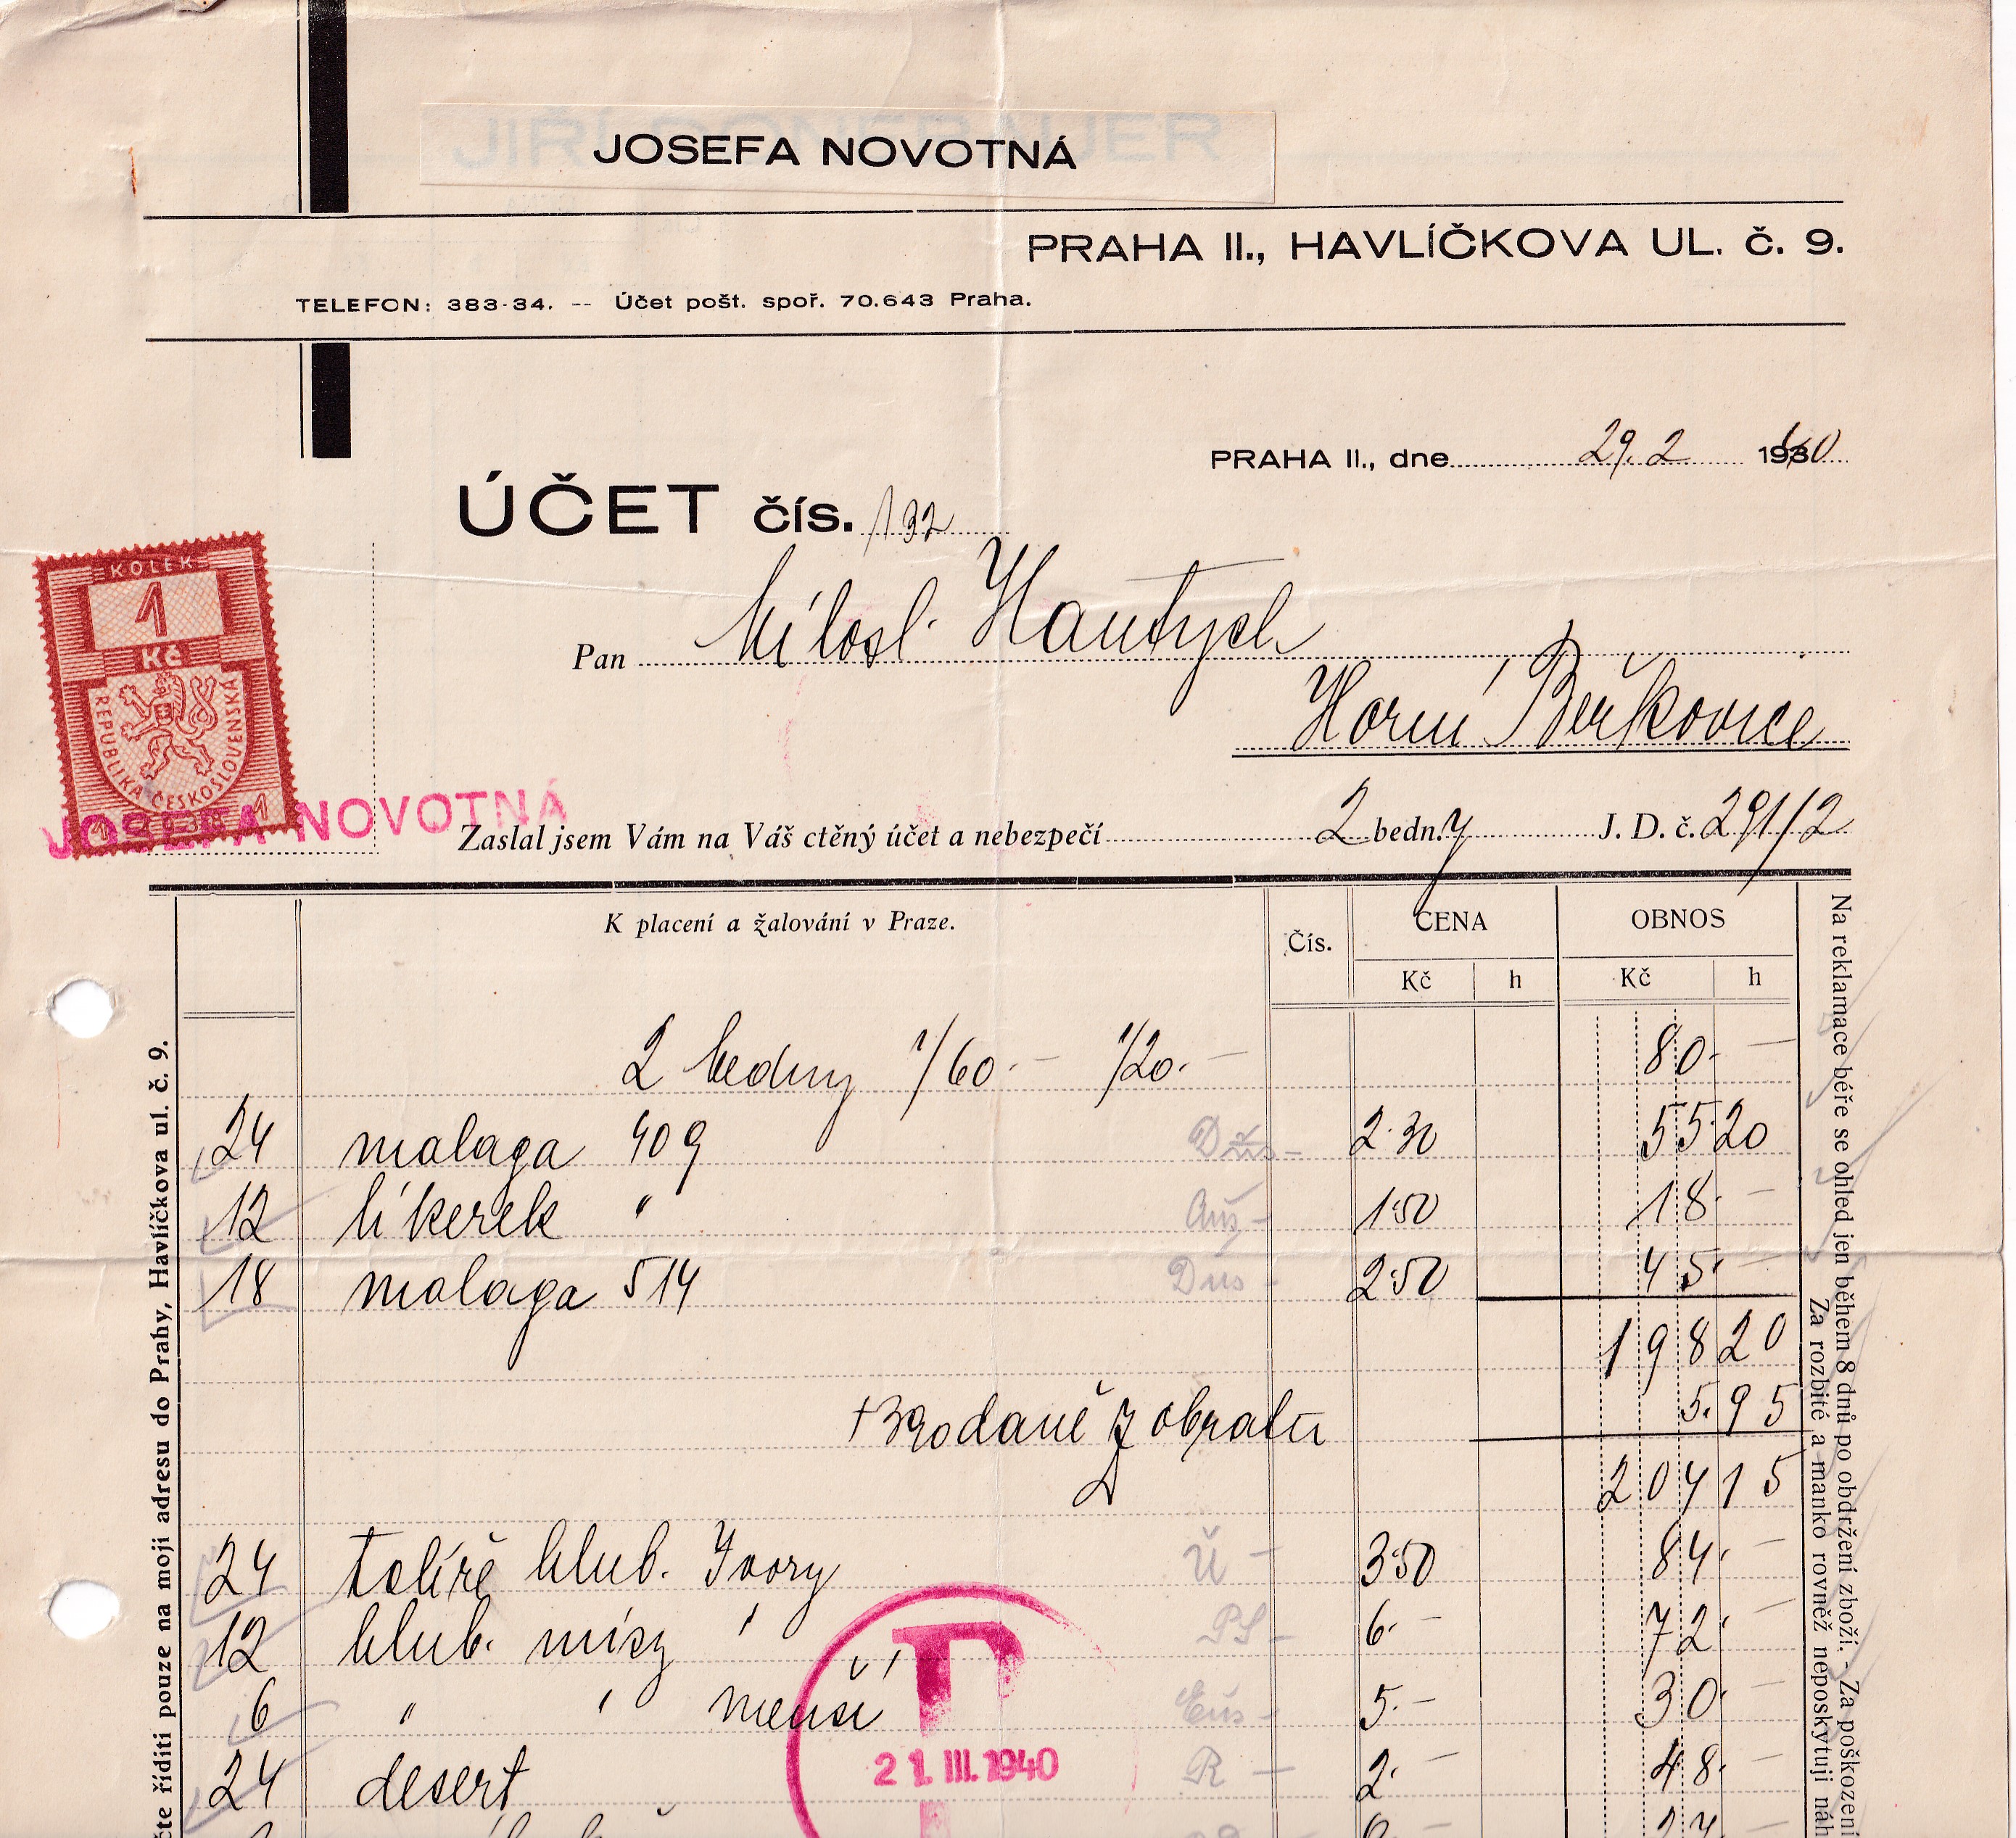 JOSEFA NOVOTNÁ
PRAHA II., HAVLÍČKOVA UL. č. 9.
TELEFON: 383-34. -- Účet pošt. spoř. 70.643 Praha.
PRAHA II., dne 29. 2. 1940
ÚČET čís. 132
KOLEK
1
Kč
REPUBLIKA ČESKOSLOVENSKÁ
JOSEFA NOVOTNÁ
Pan Milosl. Hantych
Horní Beřkovice
Zaslal jsem Vám na Váš ctěný účet a nebezpečí 2 bedn.y J. D. č. 291/2
K placení a žalování v Praze. Čís. CENA OBNOS
Kč h Kč h
2 bedny 1/60.- 1/20.- 80.-
24 malaga 409 2.30 55.20
12 likerek " Aus- 1.50 18.-
18 malaga 514 Dus- 2.50 45.-
198 20
5.95
+ 3% daně z obratu
204 15
24 talíře hlub. Ivory Ü- 3.50 84.-
12 hlub. mísy " PS- 6.- 72.-
6 " " menší Eus- 5.- 30.-
24 desert R- 2.- 48.-
21. III. 1940
čte říditi pouze na moji adresu do Prahy, Havlíčkova ul. č. 9.
Na reklamace béře se ohled jen během 8 dnů po obdržení zboží. - Za poškození
Za rozbité a manko rovněž neposkytuji náh